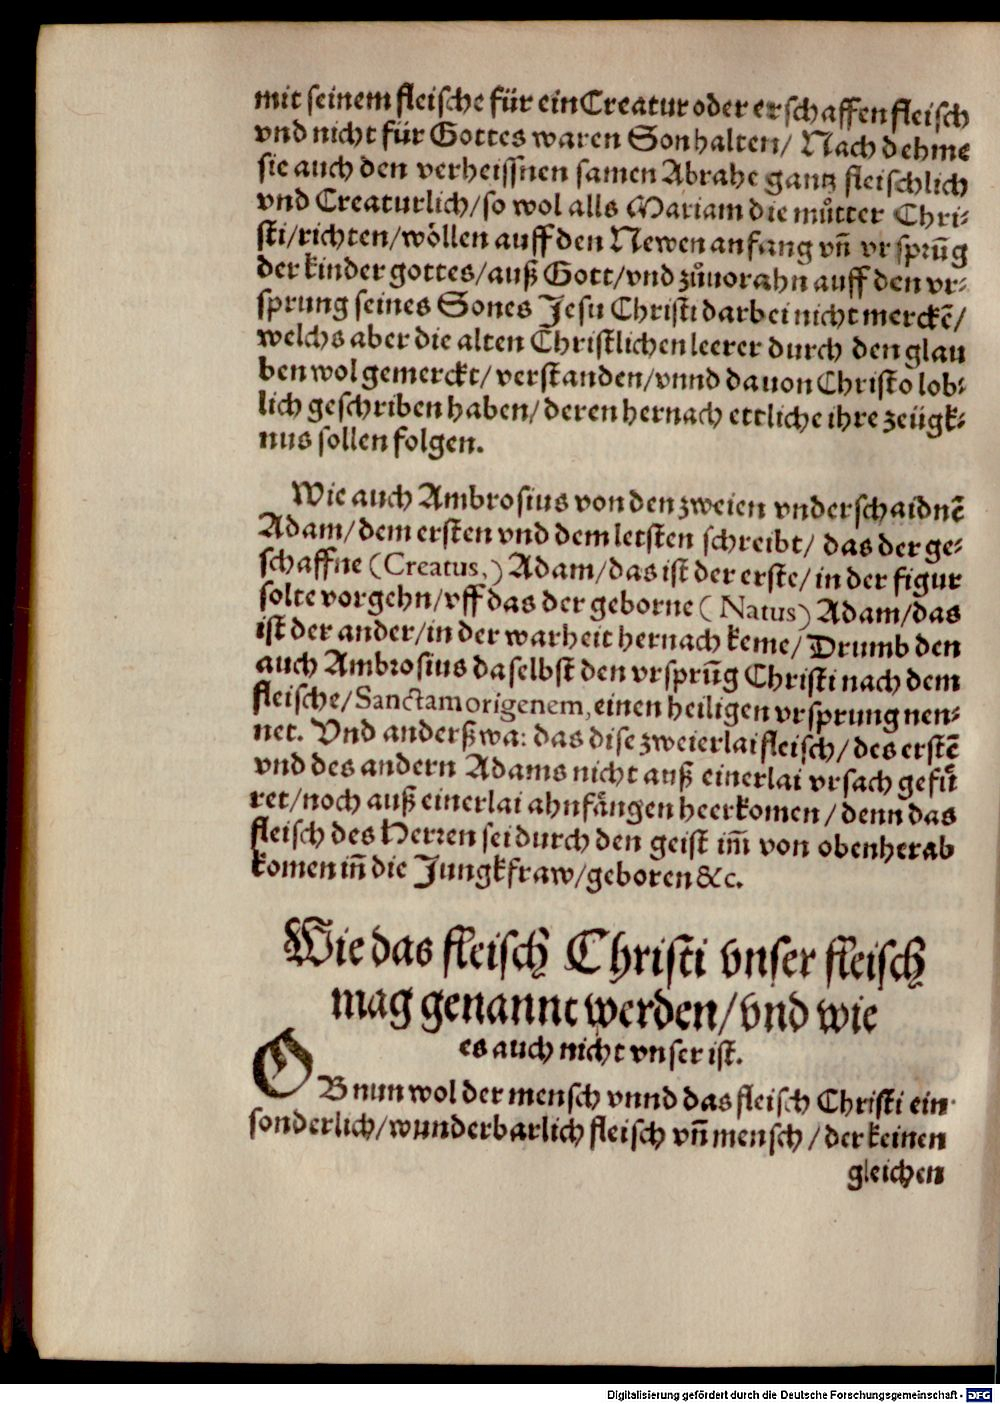 mit seinem fleische für ein Creatur oder erschaffen fleisch
vnd nicht für Gottes waren Son halten/ Nach dehme
sie auch den verheissnen samen Abrahe gantz fleischlich
vnd Creaturlich/so wol alls Mariam die můtter Chri-
sti/richten/wöllen auff den Newen anfang vñ vrsprũg
der kinder gottes/auß Gott/vnd zůuorahn auff den vr-
sprung seines Sones Jesu Christi darbei nicht merckẽ/
welchs aber die alten Christlichen leerer durch den glau
ben wol gemerckt/ verstanden/vnnd dauon Christo lob-
lich geschriben haben/ deren hernach ettliche ihre zeügk-
nus sollen folgen.
Wie auch Ambrosius von den zweien vnderschaidnẽ
Adam/dem ersten vnd dem letsten schreibt/ das der ge-
schaffne (Creatus,) Adam/das ist der erste/in der figur
solte vorgehn/vff das der geborne ( Natus) Adam/das
ist der ander/in der warheit hernach keme/ Drumb den
auch Ambrosius daselbst den vrsprũg Christi nach dem
fleische/Sanctam originem, einen heiligen vrsprung nen-
net. Vnd anderßwa: das dise zweierlai fleisch/des erstẽ
vnd des andern Adams nicht auß einerlai vrsach gefü
ret/noch auß einerlai ahnfängen heerkomen/denn das
fleisch des Herren sei durch den geist im̃ von obenherab
komen iñ die Jungkfraw/geboren &c.
Wie das fleisch Christi vnser fleisch
mag genannt werden/vnd wie
es auch nicht vnser ist.
OB nun wol der mensch vnnd das fleisch Christi ein
sonderlich/wunderbarlich fleisch vñ mensch/der keinen
gleichen
Digitalisierung gefördert durch die Deutsche Forschungsgemeinschaft - DFG